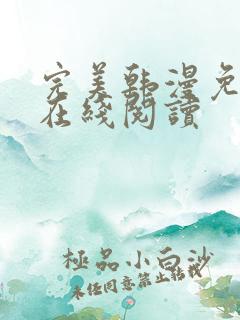 完美韩漫免
在线阅读
極品小白沙
未任同意禁止転載